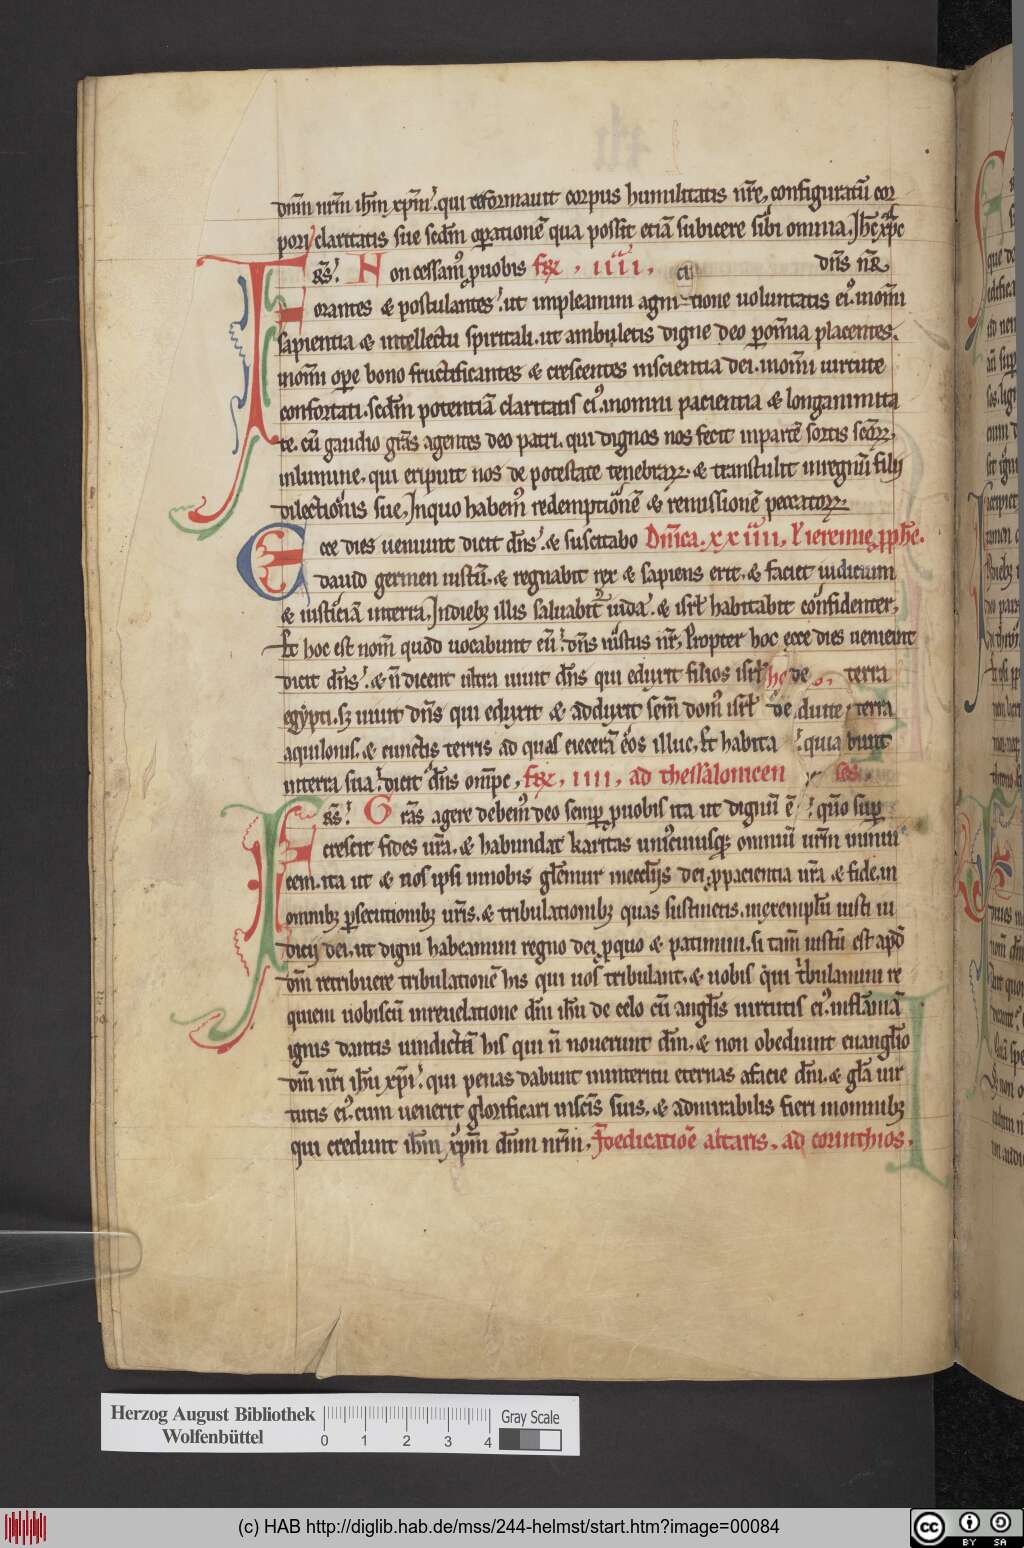 dnm nrm ihm xpm. qui reformauit corpus humilitatis nre, configuratu cor
pori claritatis sue scdm operatione qua possit etia subicere sibi omnia. Ihc xpc
FRS. Non cessam puobis fer, IIII, dns nr
orantes & postulantes. ut impleamini agnitione uoluntatis ei. inomni
sapientia & intellectu spiritali. ut ambuletis digne deo p omia placentes.
inomi ope bono fructificantes & crescentes inscientia dei. inomni uirtute
confortati. scdm potentia claritatis ei. inomni pacientia & longanimita
te. cu gaudio gras agentes deo patri. qui dignos nos fecit inparte sortis scor,
inlumine. qui eripuit nos de potestate tenebrar. & transtulit inregnu filii
dilectionis sue, Inquo habem redemptione & remissione peccator.
Ecce dies ueniunt dicit dns. & suscitabo Dnica. XXIIII, Ieremie pphe.
dauid germen iustu. & regnabit rex & sapiens erit. & faciet iudicium
& iusticiam interra. Indieb illis saluabit iuda. & isrl habitabit confidenter,
Et hoc est nom quod uocabunt eu. dns iustus nr, Propter hoc ecce dies ueniunt
dicit dns. & n dicent ultra uiuit dns qui eduxit filios isrl de terra
egypti. s uiuit dns qui eduxit & adduxit sem dom isrl de terra
aquilonis. & cunctis terris ad quas eiecera eos illuc. Et habita bunt
interra sua. dicit dns omps, fer, IIII, ad thessalonicen ses.
FRS. Gras agere debem deo semp puobis ita ut dignu e. qm sup
crescit fides ura. & habundat karitas uniuscuiusq omniu urm inuui
cem. ita ut & nos ipsi inuobis gliemur inecclis dei. p pacientia ura & fide. in
omnib psecutionib uris. & tribulationib quas sustinetis. inexemplu iusti iu
dicii dei. ut digni habeamini regno dei. pquo & patimini. si tam iustu est apd
dm retribuere tribulatione his qui uos tribulant. & uobis qui tribulamini re
quiem nobiscu inreuelatione dni ihu de celo cu anglis uirtutis ei. inflamma
ignis dantis uindicta his qui n nouerunt dm. & non obediunt euanglio
dni nri ihu xpi. qui penas dabunt ininteritu eternas afacie dni. & gla uir
tutis ei. cum uenerit glorificari inscis suis. & admirabilis fieri inomnib
qui credunt ihm xpm dnm nrm, Indedicatioe altaris, ad corinthios,
Herzog August Bibliothek
Wolfenbüttel
0 1 2 3 4
Gray Scale
(c) HAB http://diglib.hab.de/mss/244-helmst/start.htm?image=00084
cc BY SA